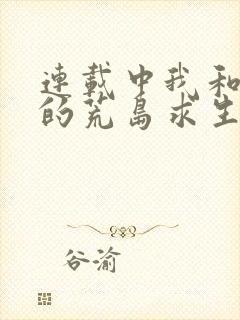 連載中我和
的荒島求生
谷渝